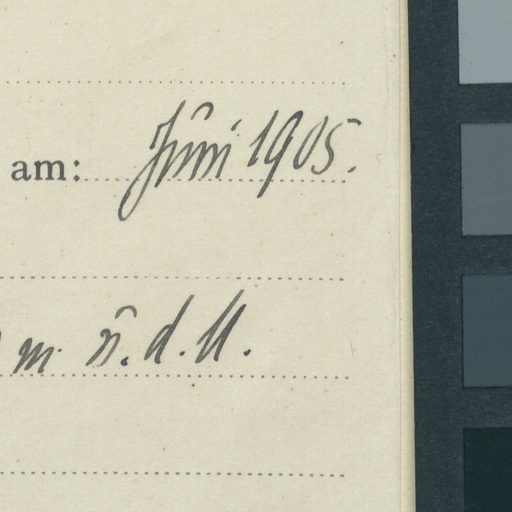 am: Juni 1905.
m ü. d. M.